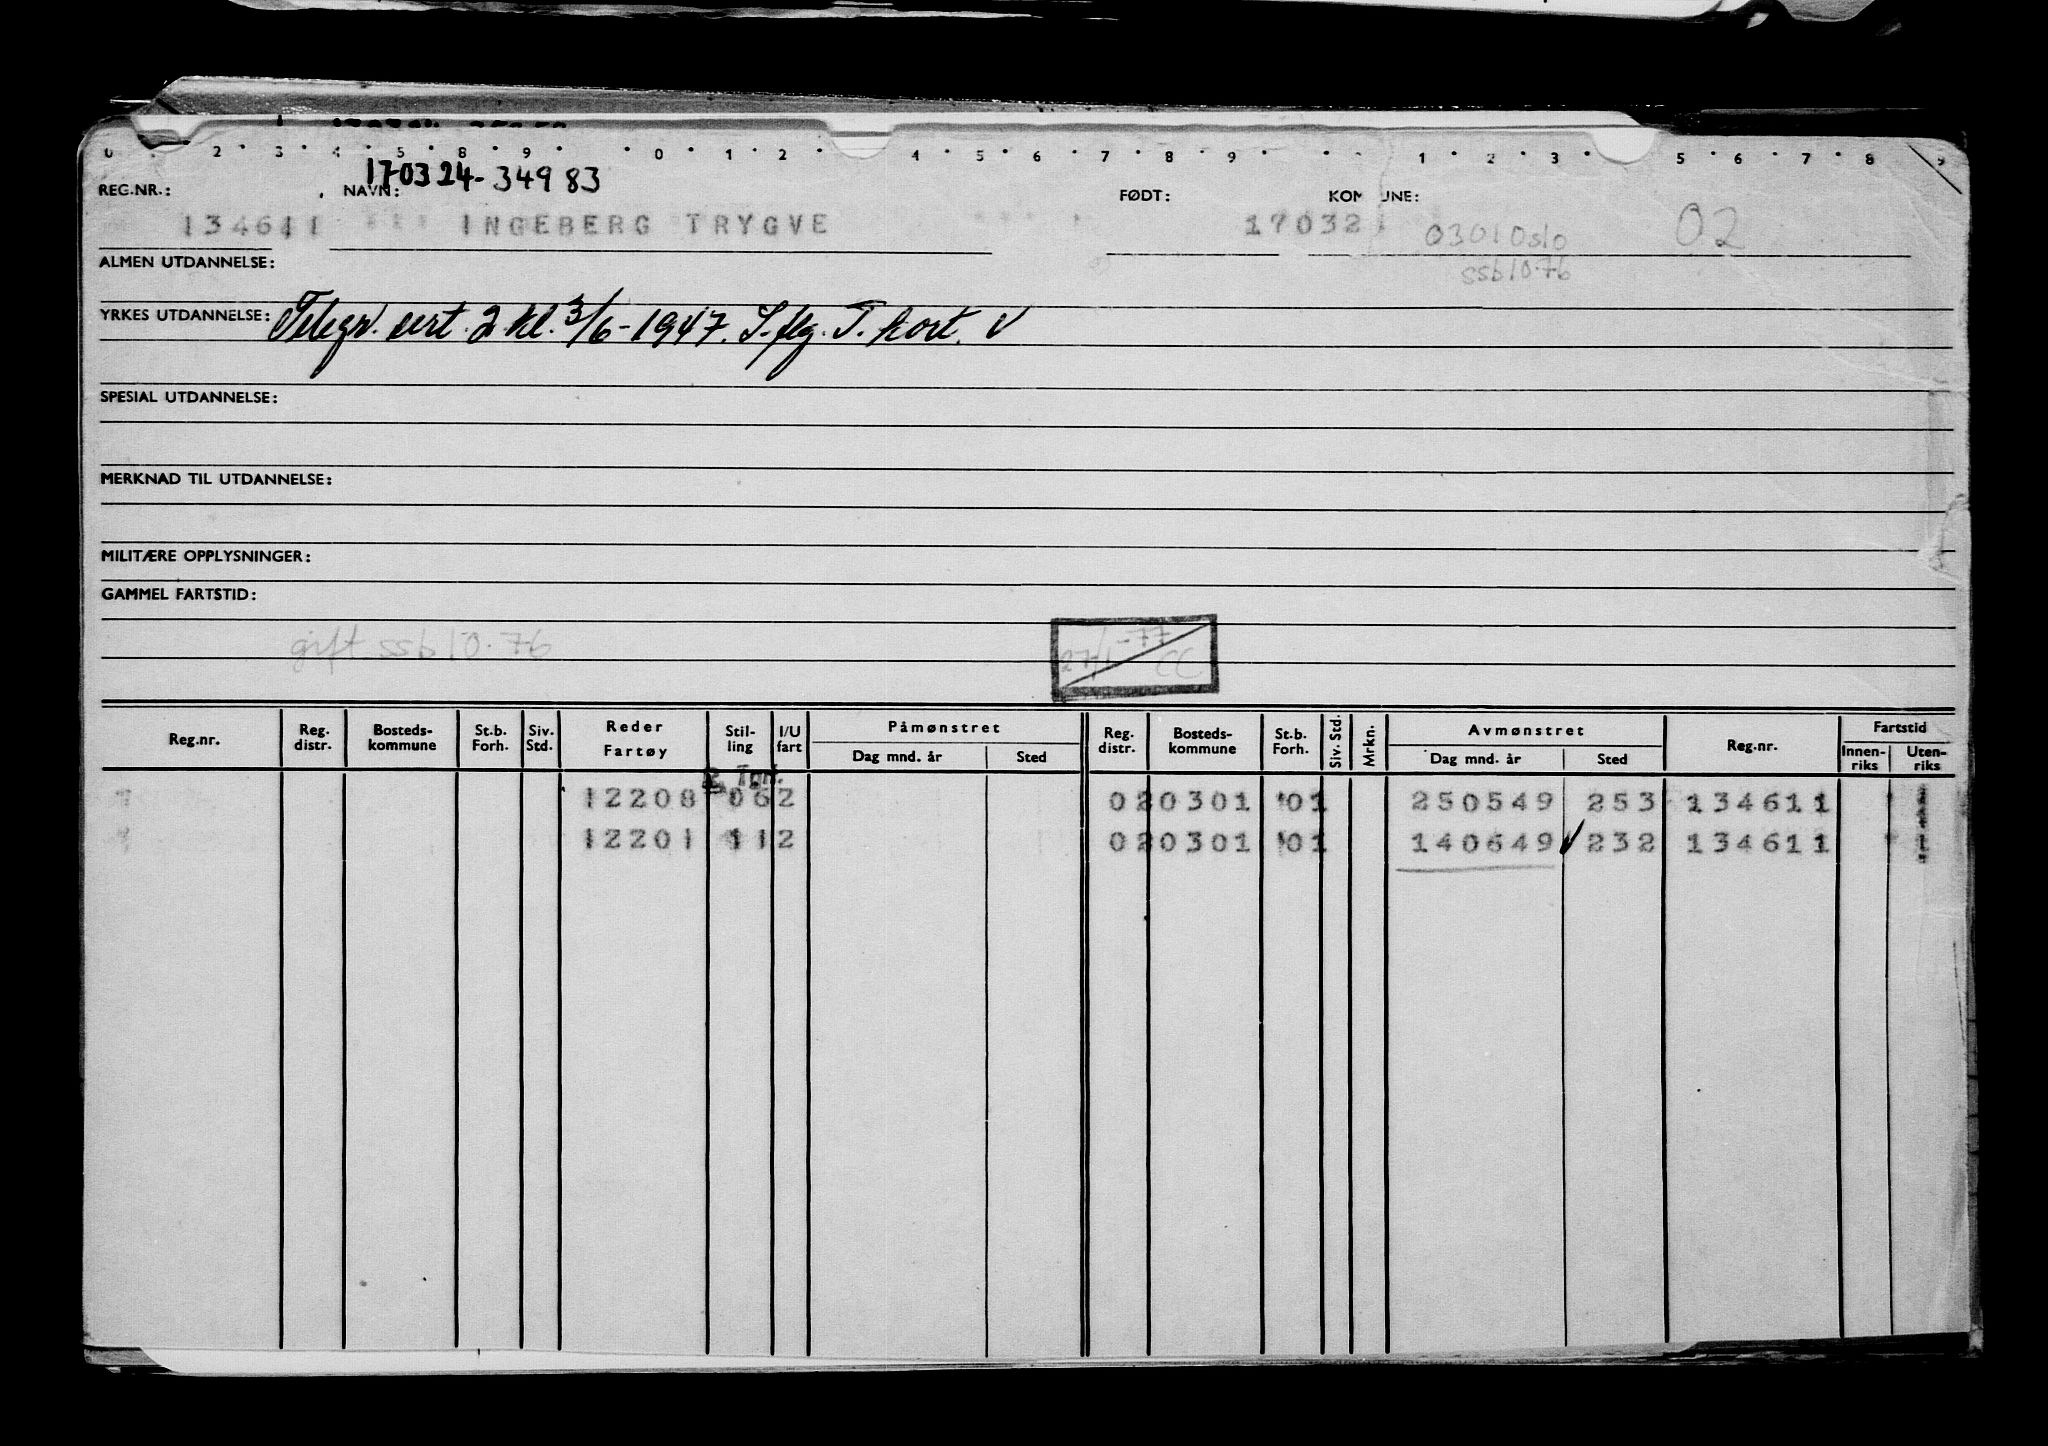 0 2 3 4 5 8 9 0 1 2 4 5 6 7 8 9 1 2 3 5 6 7 8 9
170324-34983
REG.NR.: NAVN: FØDT: KOMMUNE:
134611 INGEBERG TRYGVE 17032 0301 Oslo 02
ssb 10.76
ALMEN UTDANNELSE:
YRKES UTDANNELSE: Telegr. sert. 2 kl. 3/6-1947. S.flg. T. kort. V
SPESIAL UTDANNELSE:
MERKNAD TIL UTDANNELSE:
MILITÆRE OPPLYSNINGER:
GAMMEL FARTSTID:
gift ssb 10.76 27/1-77 CC
Reg.nr. Reg. distr. Bosteds-kommune St.b. Forh. Siv. Std. Reder Fartøy Stil-ling I/U fart Påmønstret Dag mnd. år Sted Reg. distr. Bosteds-kommune St.b. Forh. Siv. Std. Mrkn. Avmønstret Dag mnd. år Sted Reg.nr. Fartstid Innen-riks Uten-riks
12208 062 020301 01 250549 253 134611
12201 112 020301 01 140649 232 134611